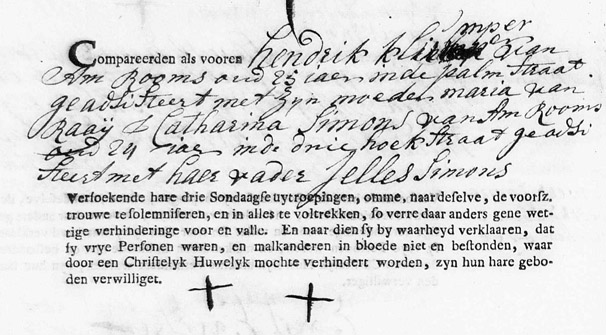 Compareerden als vooren hendrik klimper van
Am Rooms oud 25 iaer inde palm straat.
geadsisteert met zyn moeder maria van
Raaÿ & Catharina Simons van Am Rooms
oud 24 iaer inde drie hoek straat geadsi
steert met haer vader Jelles Simons
Verſoekende hare drie Sondaagſe uytroepingen, omme, naar deſelve, de voorſz.
trouwe te ſolemniſeren, en in alles te voltrekken, ſo verre daar anders gene wet-
tige verhinderinge voor en valle. En naar dien ſy by waarheyd verklaaren, dat
ſy vrye Perſonen waren, en malkanderen in bloede niet en beſtonden, waar
door een Chriſtelyk Huwelyk mochte verhindert worden, zyn hun hare gebo-
den verwilliget.